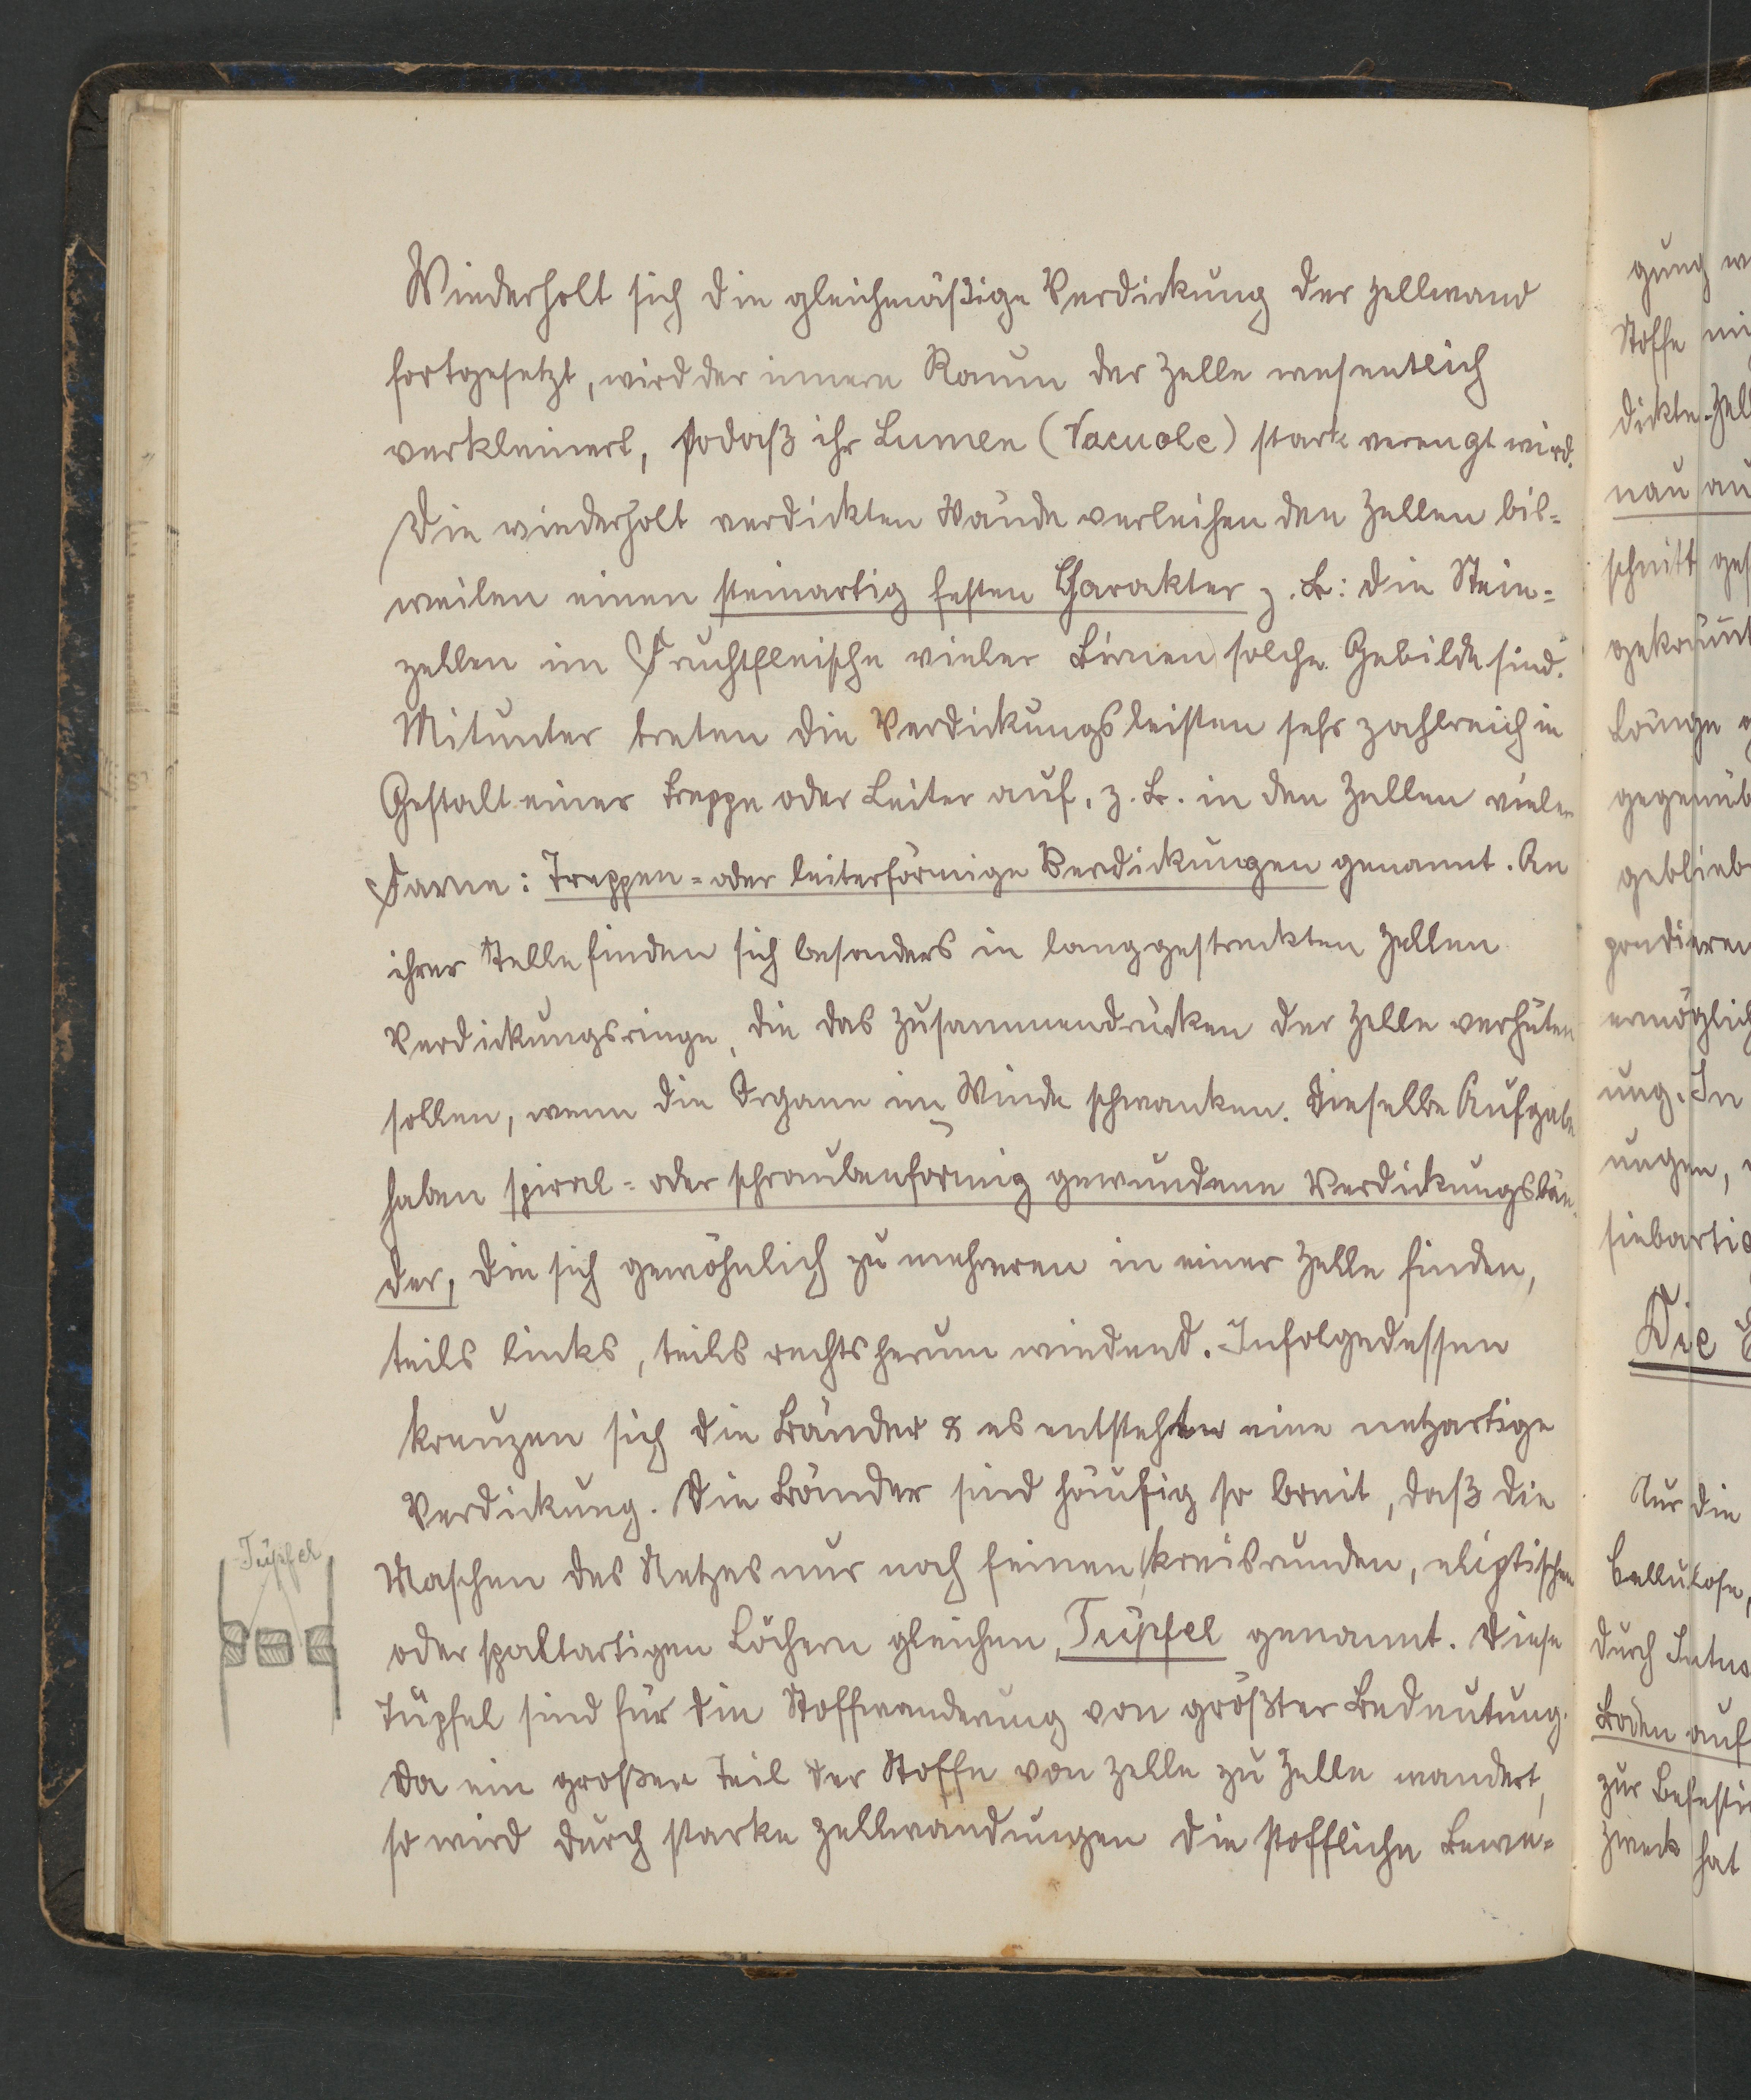 Wiederholt sich die gleichmäßige Verdickung der Zellwand
fortgesetzt, wird der innere Raum der Zelle wesentlich
verkleinert, sodaß ihr Lumen (Vacuole) stark verengt wird.
Die wiederholt verdickten Wände verleihen den Zellen bis=
weilen einen steinartig festen Charakter z. B: die Stein=
zellen im Fruchtfleische vieler Birnen solche Gebilde sind.
Mitunter treten die Verdickungsleisten sehr zahlreich in
Gestalt einer Treppe oder Leiter auf, z. B. in den Zellen vieler
Farne: Treppen= oder leiterförmige Verdickungen genannt. An
ihrer Stelle finden sich besonders in langgestreckten Zellen
Verdickungsringe, die das Zusammendrücken der Zelle verhüten
sollen, wenn die Organe im Winde schwanken. Dieselbe Aufgabe
haben spiral= oder schraubenförmig gewundene Verdickungsbän=
der, die sich gewöhnlich zu mehreren in einer Zelle finden,
teils links, teils rechtsherum windend. Infolgedessen
kreuzen sich die Bänder & es entstehen eine netzartige
Verdickung. Die Bänder sind häufig so breit, daß die
Maschen des Netzes nur noch feinen, kreisrunden, eliptischen
oder spaltartigen Löchern gleichen, Tüpfel genannt. Diese
Tüpfel sind für die Stoffwanderung von größter Bedeutung.
Da ein großer Teil der Stoffe von Zelle zu Zelle wandert,
so wird durch starke Zellwandungen die stoffliche Bewe=
Tüpfel
gung w
Stoffe mi
dickte Zel
nau au
schnitt ges
gekrümt
Länge g
gegenüb
geblieb
pondieren
ermöglich
ung. In
ungen,
siebartig
Die
Nur die
Cellulose,
durch Intus
Boden auf
zur Befesti
Zweck hat